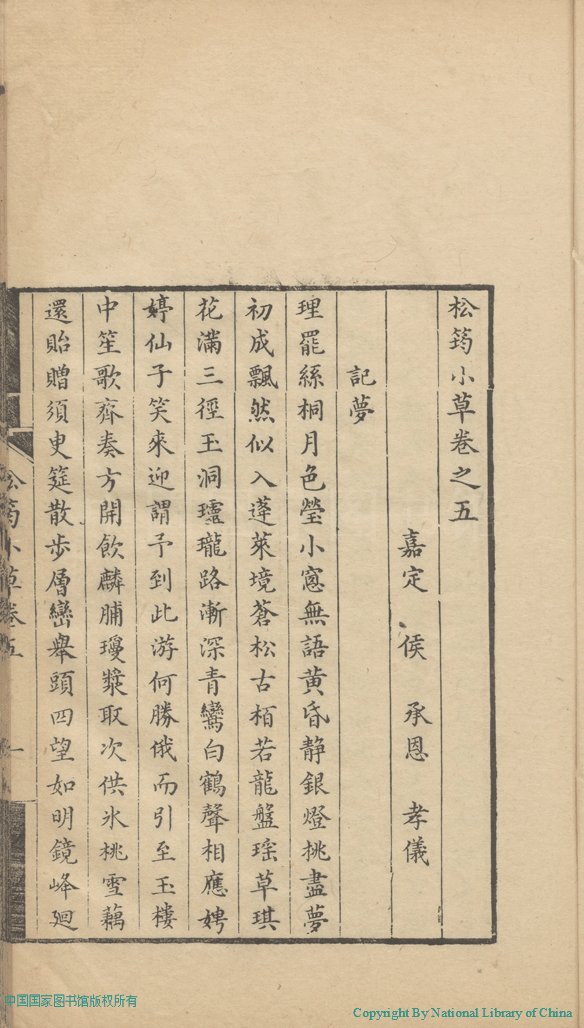 松筠小草卷之五
嘉定 侯 承恩 孝儀
記夢
理罷絲桐月色瑩小窻無語黄昏靜銀燈挑盡夢
初成飄然似入蓬萊境蒼松古栢若龍盤瑶草琪
花滿三徑玉洞瓏瓏路漸深青鸞白鶴聲相應娉
婷仙子笑來迎謂予到此游何勝俄而引至玉樓
中笙歌齊奏方開飲麟脯瓊漿取次供氷桃雪藕
還貽贈須臾筵散步層巒舉頭四望如明鏡峰廻
松筠小草卷五
一
中国国家图书馆版权所有
Copyright By National Library of China